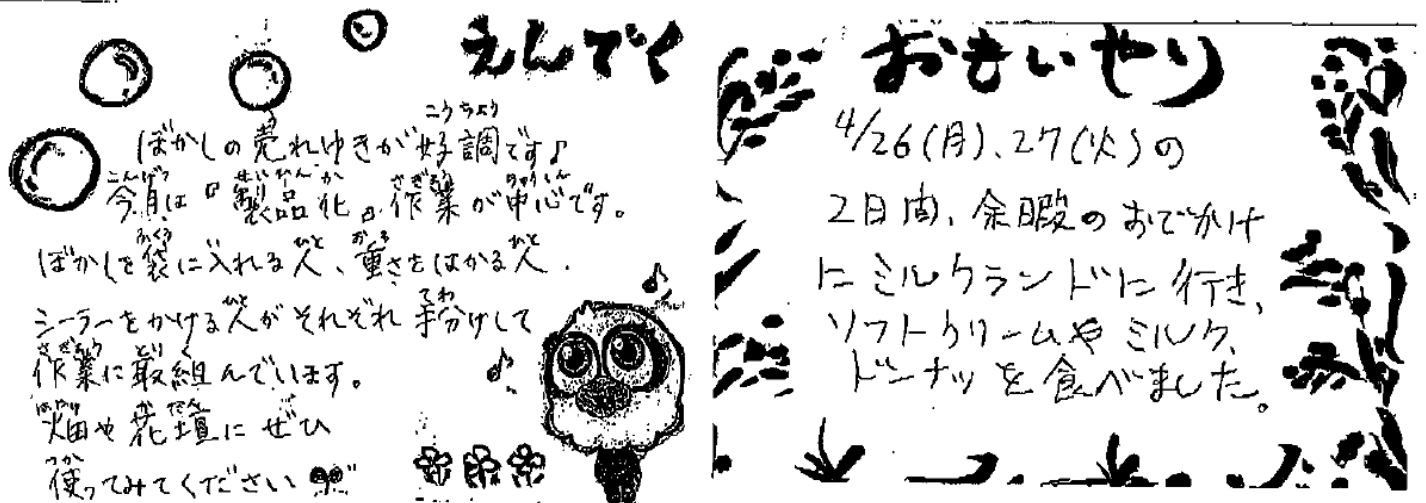 えんでく
ぼかしの売れゆきが好調です♪
今月は『製品化』作業が中心です。
ぼかしを袋に入れる人、重さをはかる人、
シーラーをかける人がそれぞれ手分けして
作業に取組んでいます。
畑や花壇にぜひ
使ってみてください
おもいやり
4/26(月)、27(火)の
2日間、余暇のおでかけ
にミルクランドに行き、
ソフトクリームやミルク、
ドーナッツを食べました。